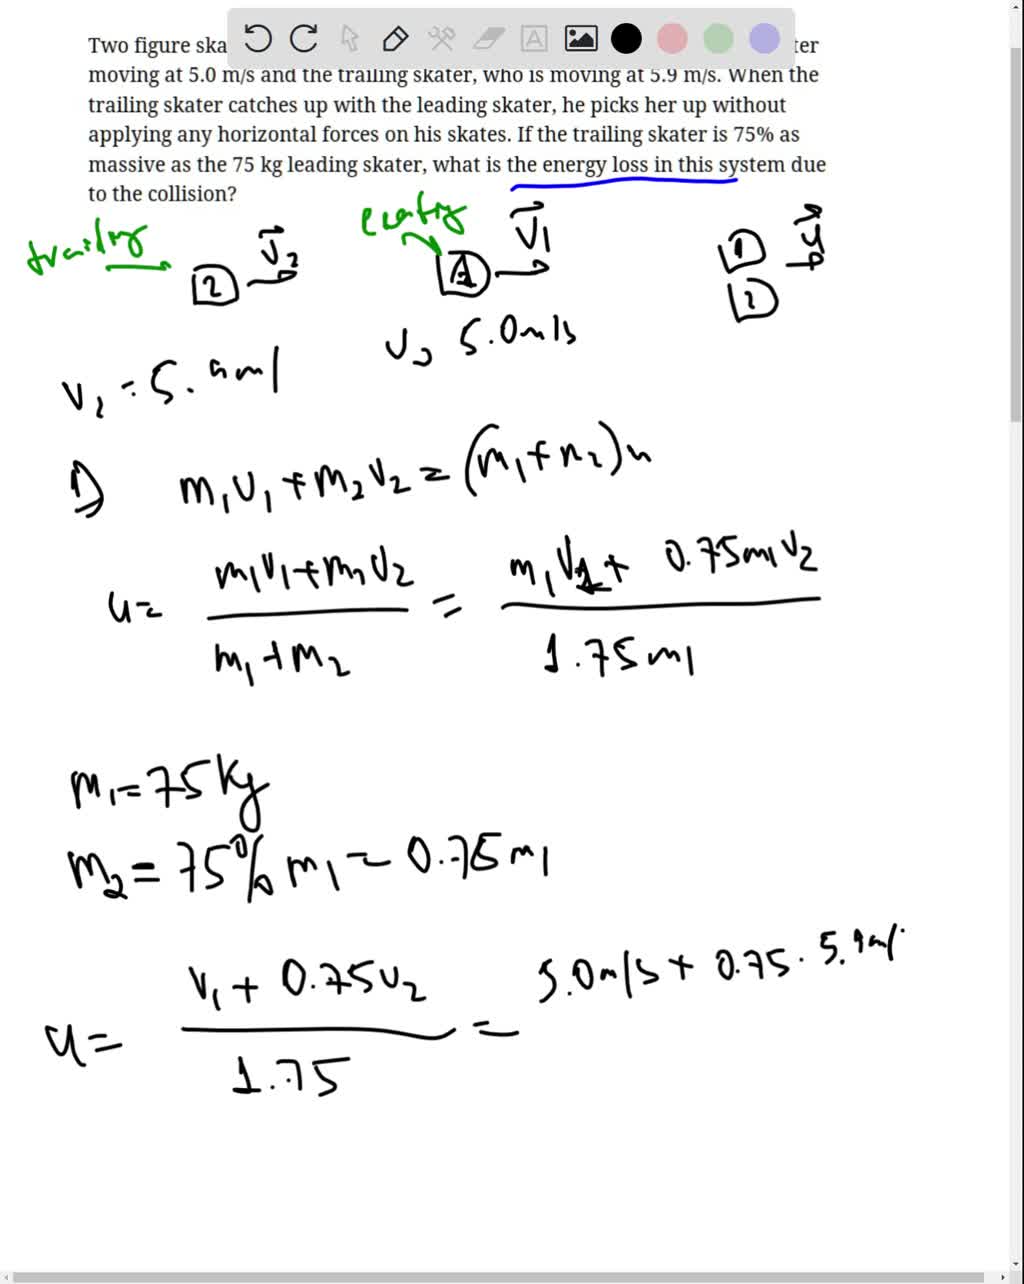 Two figure ska
ter
moving at 5.0 m/s and the trailing skater, who is moving at 5.9 m/s. When the
trailing skater catches up with the leading skater, he picks her up without
applying any horizontal forces on his skates. If the trailing skater is 75% as
massive as the 75 kg leading skater, what is the energy loss in this system due
to the collision?
trailing
2 v⃗2
1 v⃗1
1 u⃗
2
v2 = 5.9 m/
5.0 m/s
1) m1v1 + m2v2 = (m1 + m2)u
u = (m1v1 + m2v2)/(m1 + m2) = (m1v1 + 0.75m1v2)/(1.75m1)
m1 = 75 kg
m2 = 75% m1 = 0.75 m1
u = (v1 + 0.75v2)/1.75 = 5.0 m/s + 0.75 · 5.9 m/